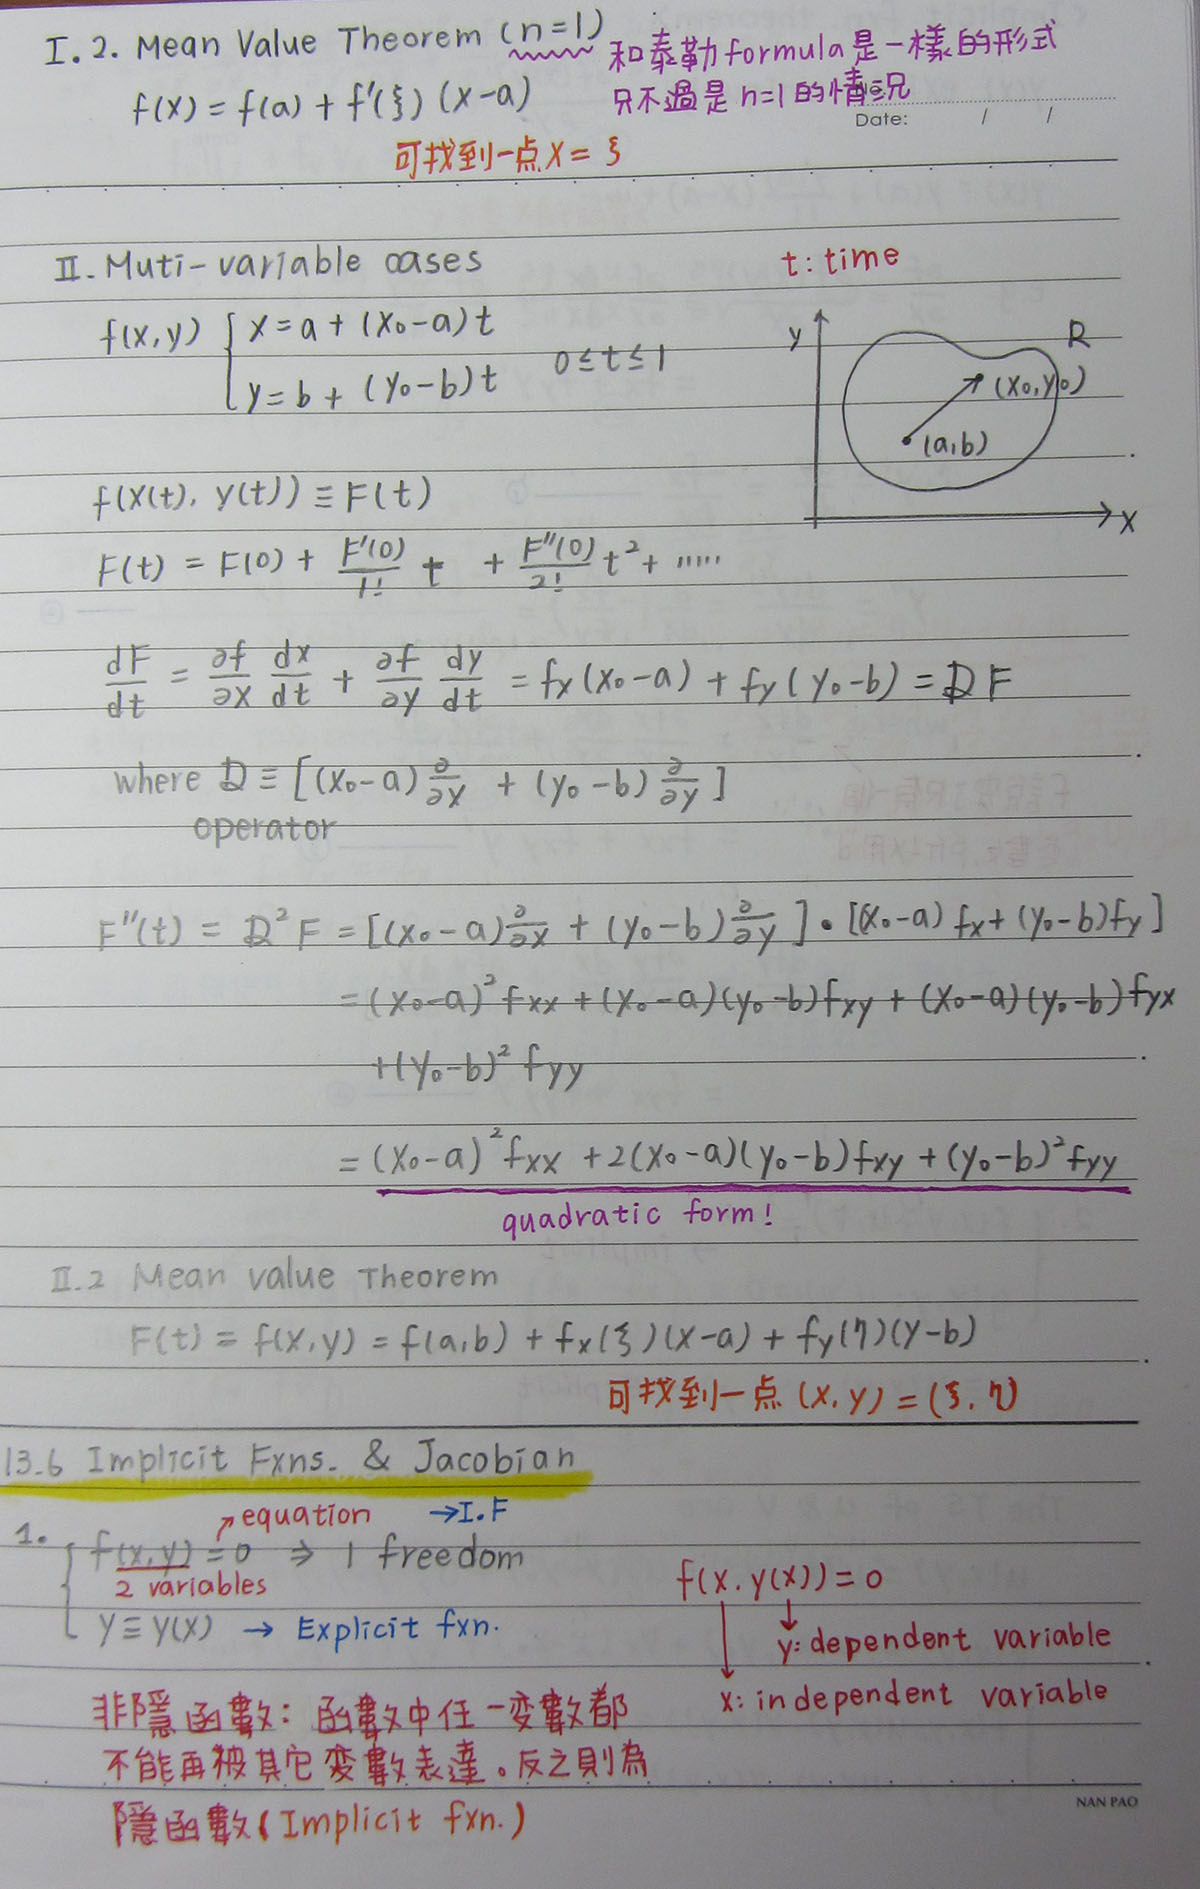 I.2. Mean Value Theorem (n=1) 和泰勒formula是一樣的形式
只不過是n=1的情況
f(x) = f(a) + f'(ξ)(x-a)
Date: / /
可找到一点X=ξ
II. Muti-variable cases
t: time
f(x,y) { x = a + (x₀-a)t
y = b + (y₀-b)t
0≤t≤1
y
R
(x₀,y₀)
(a,b)
x
f(x(t), y(t)) ≡ F(t)
F(t) = F(0) + F'(0)/1! t + F''(0)/2! t² + .....
dF/dt = ∂f/∂x dx/dt + ∂f/∂y dy/dt = fx(x₀-a) + fy(y₀-b) = D F
where D ≡ [(x₀-a) ∂/∂x + (y₀-b) ∂/∂y]
operator
F''(t) = D²F = [(x₀-a) ∂/∂x + (y₀-b) ∂/∂y]・[(x₀-a) fx + (y₀-b) fy]
= (x₀-a)² fxx + (x₀-a)(y₀-b) fxy + (x₀-a)(y₀-b) fyx
+ (y₀-b)² fyy
= (x₀-a)² fxx + 2(x₀-a)(y₀-b) fxy + (y₀-b)² fyy
quadratic form!
II.2 Mean value Theorem
F(t) = f(x,y) = f(a,b) + fx(ξ)(x-a) + fy(η)(y-b)
可找到一点 (x,y) = (ξ,η)
13.6 Implicit Fxns. & Jacobian
equation →I.F
1. { f(x,y) = 0 ⇒ 1 freedom
2 variables
y ≡ y(x) → Explicit fxn.
f(x, y(x)) = 0
y: dependent variable
x: independent variable
非隱函數: 函數中任一変數都
不能再被其它変數表達。反之則為
隱函數(Implicit fxn.)
NAN PAO